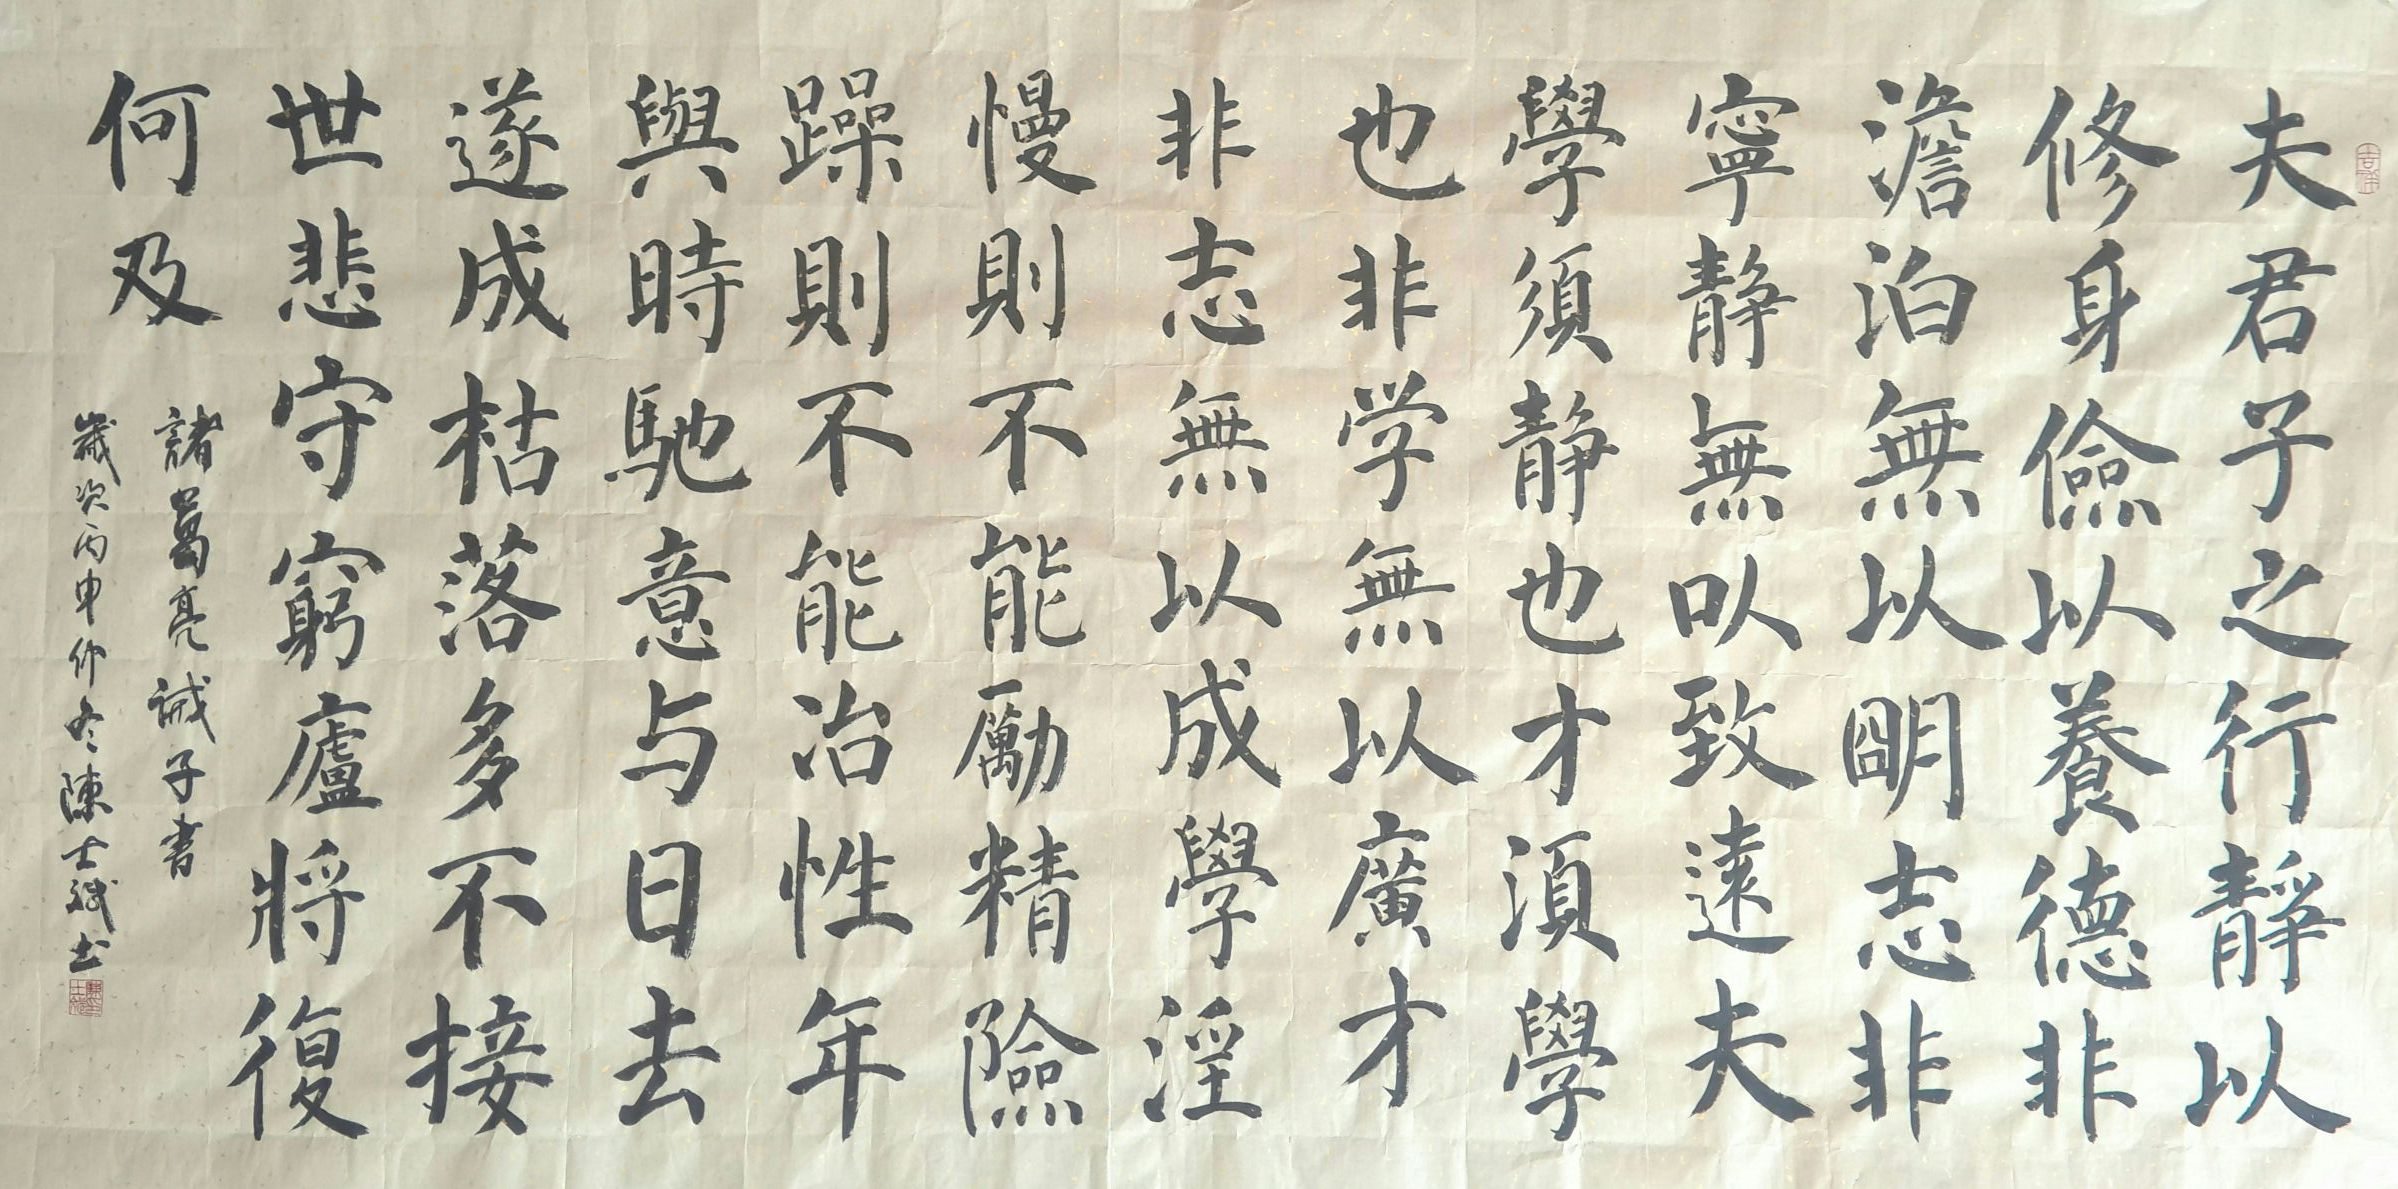 夫君子之行静以
修身儉以養德非
澹泊無以明志非
寧静無以致遠夫
學須静也才須學
也非学無以廣才
非志無以成學淫
慢則不能勵精險
躁則不能冶性年
與時馳意与日去
遂成枯落多不接
世悲守窮廬將復
何及
諸葛亮誡子書
歲次丙申仲冬陳士斌书